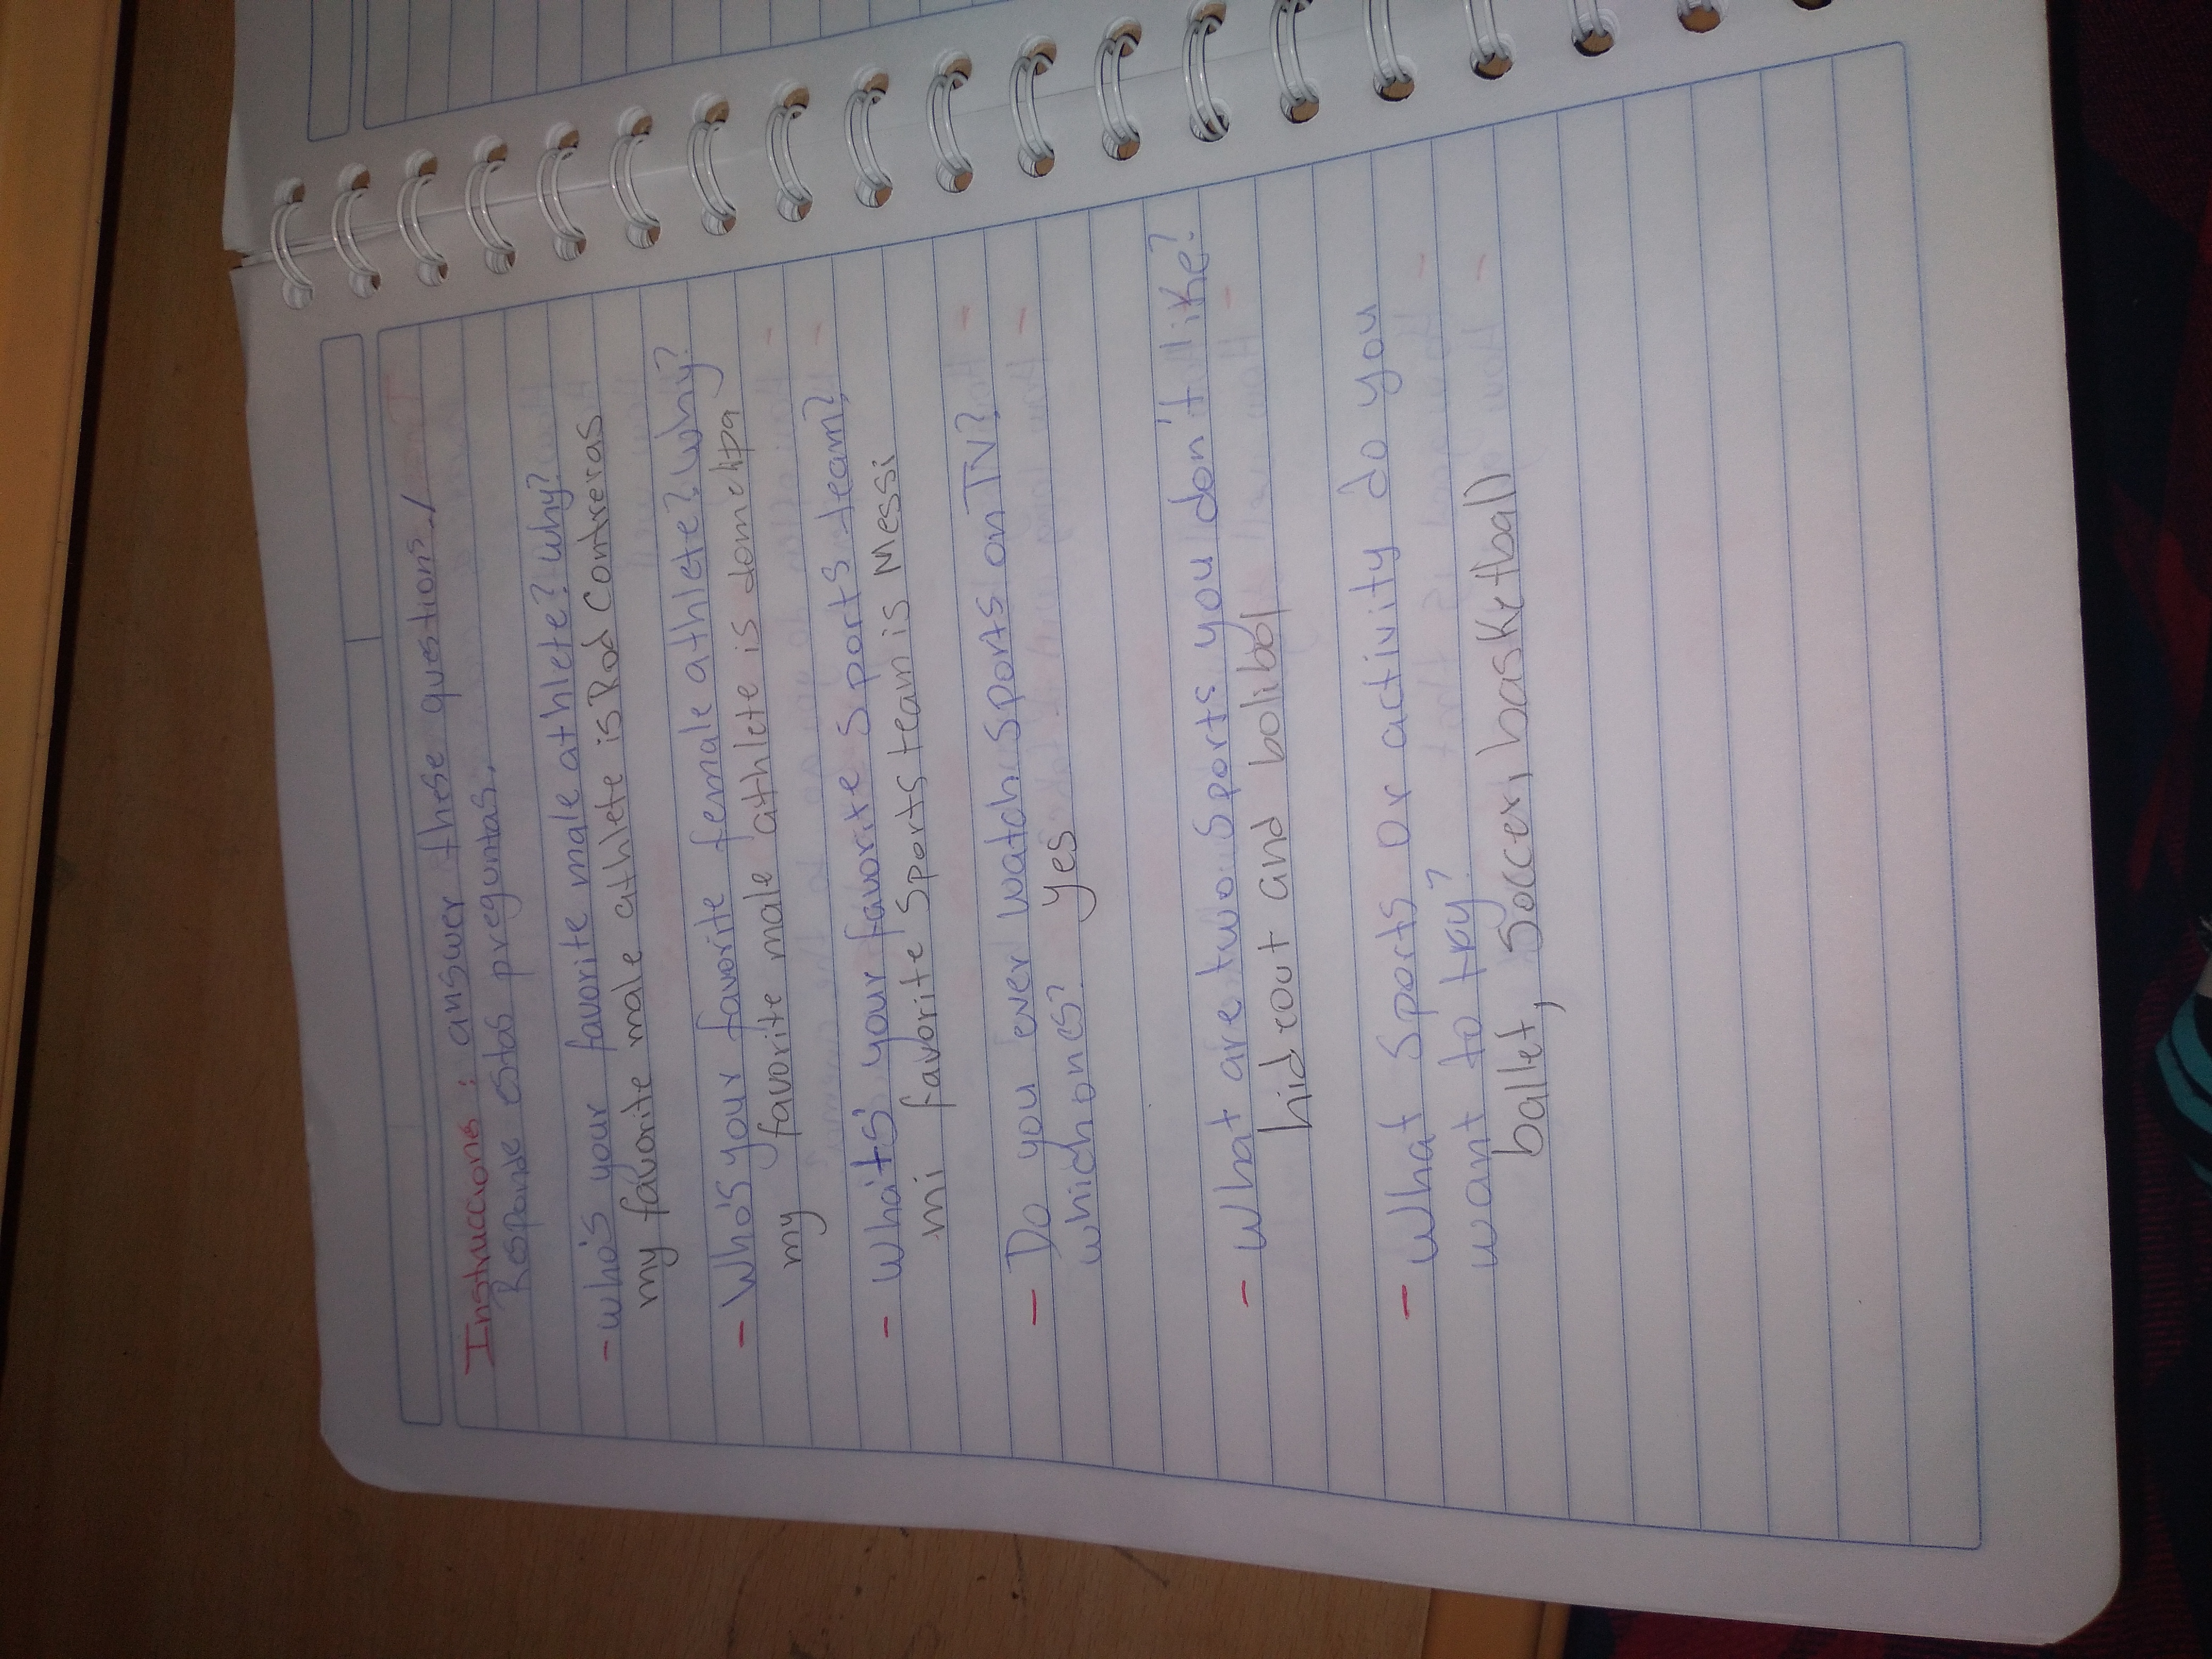 Instrucciones: answer these questions./
Responde estas preguntas.
- who's your favorite male athlete? why?
my favorite male athlete is Rod Contreras
- Who's your favorite female athlete? why?
my favorite male athlete is domelipa
- What's your favorite sports team?
mi favorite sports team is Messi
- Do you ever watch sports on TV?
which ones? yes
- What are two sports you don't like?
hidrout and bolibol
- What sports or activity do you
want to try?
ballet, soccer, basketball